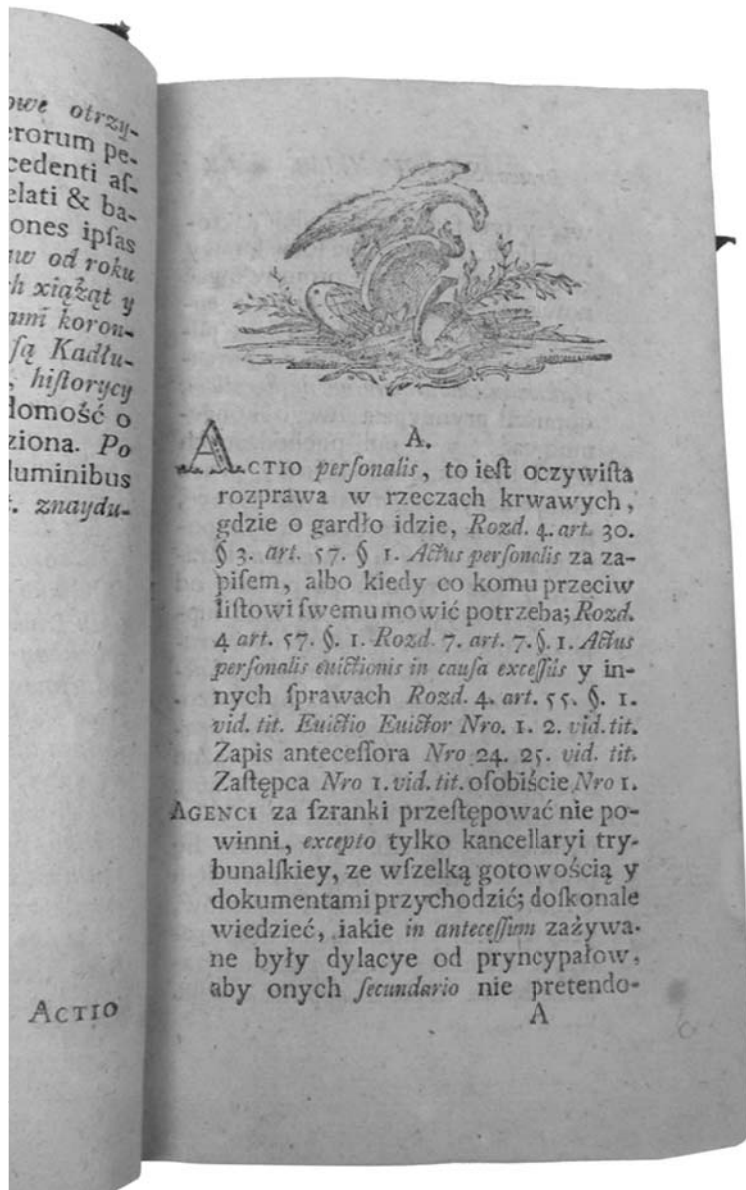 owe otrzy-
erorum pe-
cedenti aſ-
elati & ba-
ones ipſas
aw od roku
h xiążąt y
ami koron-
ſą Kadłu-
, hiſtorycy
domość o
ziona. Po
luminibus
t. znaydu-
ACTIO
A.
ACTIO perſonalis, to ieſt oczywiſta
rozprawa w rzeczach krwawych,
gdzie o gardło idzie, Rozd. 4. art. 30.
§ 3. art. 57. § 1. Actus perſonalis za za-
piſem, albo kiedy co komu przeciw
liſtowi ſwemu mowić potrzeba; Rozd.
4 art. 57. §. 1. Rozd. 7. art. 7. §. 1. Actus
perſonalis euictionis in cauſa exceſſûs y in-
nych ſprawach Rozd. 4. art. 55. §. 1.
vid. tit. Euictio Euictor Nro. 1. 2. vid. tit.
Zapis anteceſſora Nro 24. 25. vid. tit.
Zaſtępca Nro 1. vid. tit. oſobiście Nro 1.
AGENCI za ſzranki przeſtępować nie po-
winni, excepto tylko kancellaryi try-
bunalſkiey, ze wſzelką gotowością y
dokumentami przychodzić; doſkonale
wiedzieć, iakie in anteceſſum zażywa-
ne były dylacye od pryncypałow,
aby onych ſecundario nie pretendo-
A